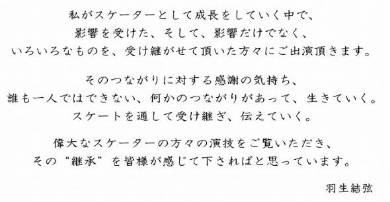 私がスケーターとして成長をしていく中で、
影響を受けた、そして、影響だけでなく、
いろいろなものを、受け継がせて頂いた方々にご出演頂きます。
そのつながりに対する感謝の気持ち、
誰も一人ではできない、何かのつながりがあって、生きていく。
スケートを通して受け継ぎ、伝えていく。
偉大なスケーターの方々の演技をご覧いただき、
その“継承”を皆様が感じて下さればと思っています。
羽生結弦